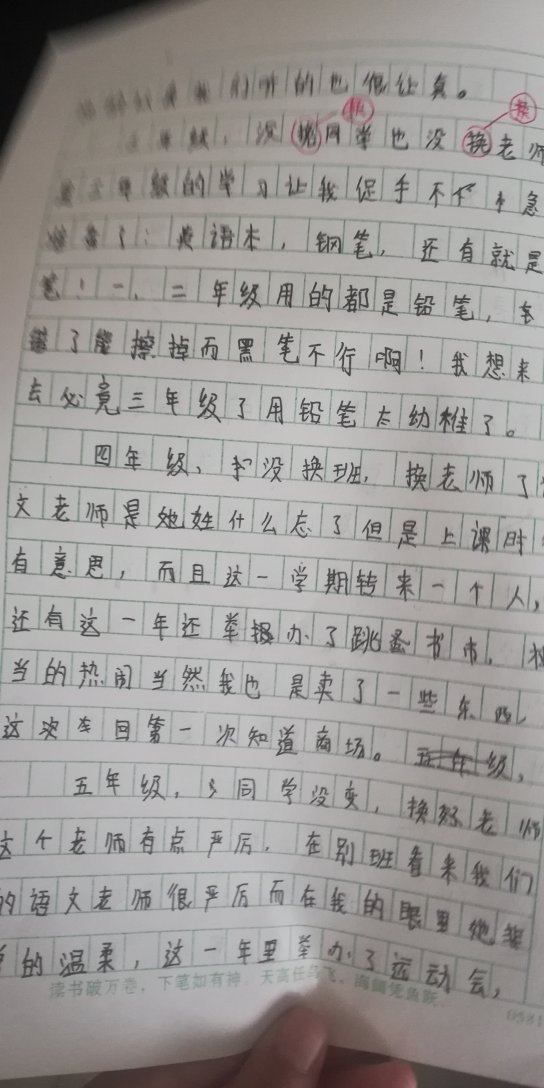 们听的也很认真。
换 换
年级，没换同学也没换老师
年级的学习让我促手不
了：英语本，钢笔，还有就是
笔！一、二年级用的都是铅笔，
错了能擦掉而黑笔不行啊！我想来
去必竟三年级了用铅笔太幼稚了。
四年级、没换班，换老师了
文老师是她姓什么忘了但是上课时
有意思，而且这一学期转来一个人，
还有这一年还举报办了跳蚤书市，
当的热闹当然我也是卖了一些东西
这次本自第一次知道商场。五年级，
五年级，同学没变，换好老师
这个老师有点严厉，在别班看来我们
的语文老师很严厉而在我的眼里她
的温柔，这一年里举办了运动会，
读书破万卷，下笔如有神 天高任鸟飞，海阔凭鱼跃